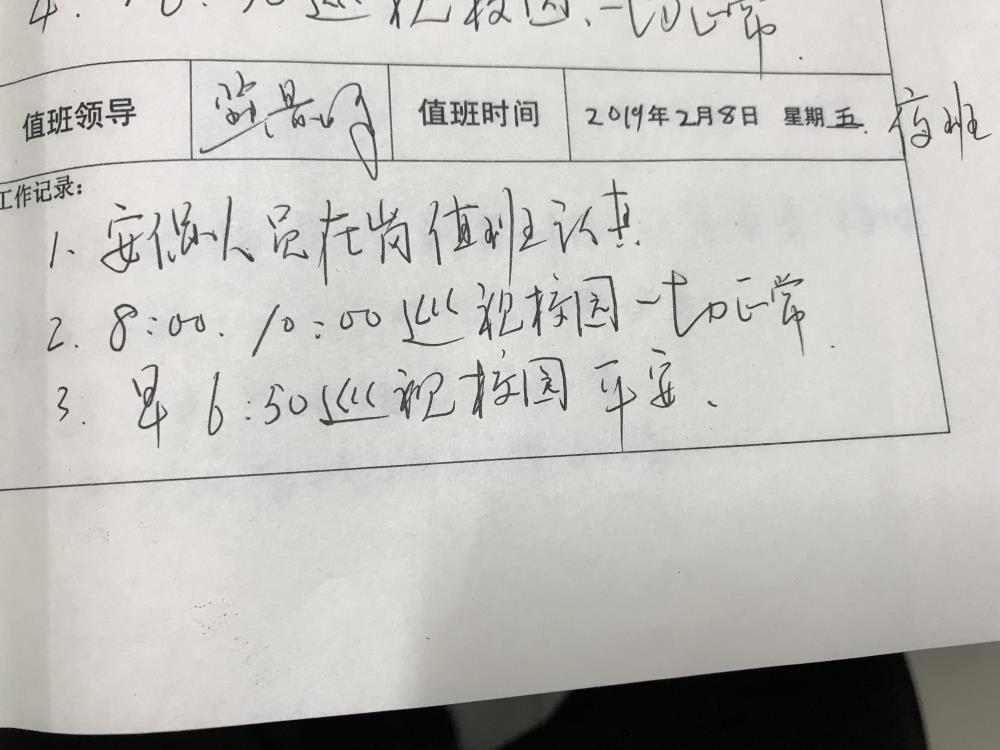 巡视校园、一切正常.
值班领导 值班时间 2019年2月8日 星期五. 夜班
工作记录：
1. 安保人员在岗值班认真
2. 8:00. 10:00巡视校园一切正常.
3. 早6:50巡视校园平安.